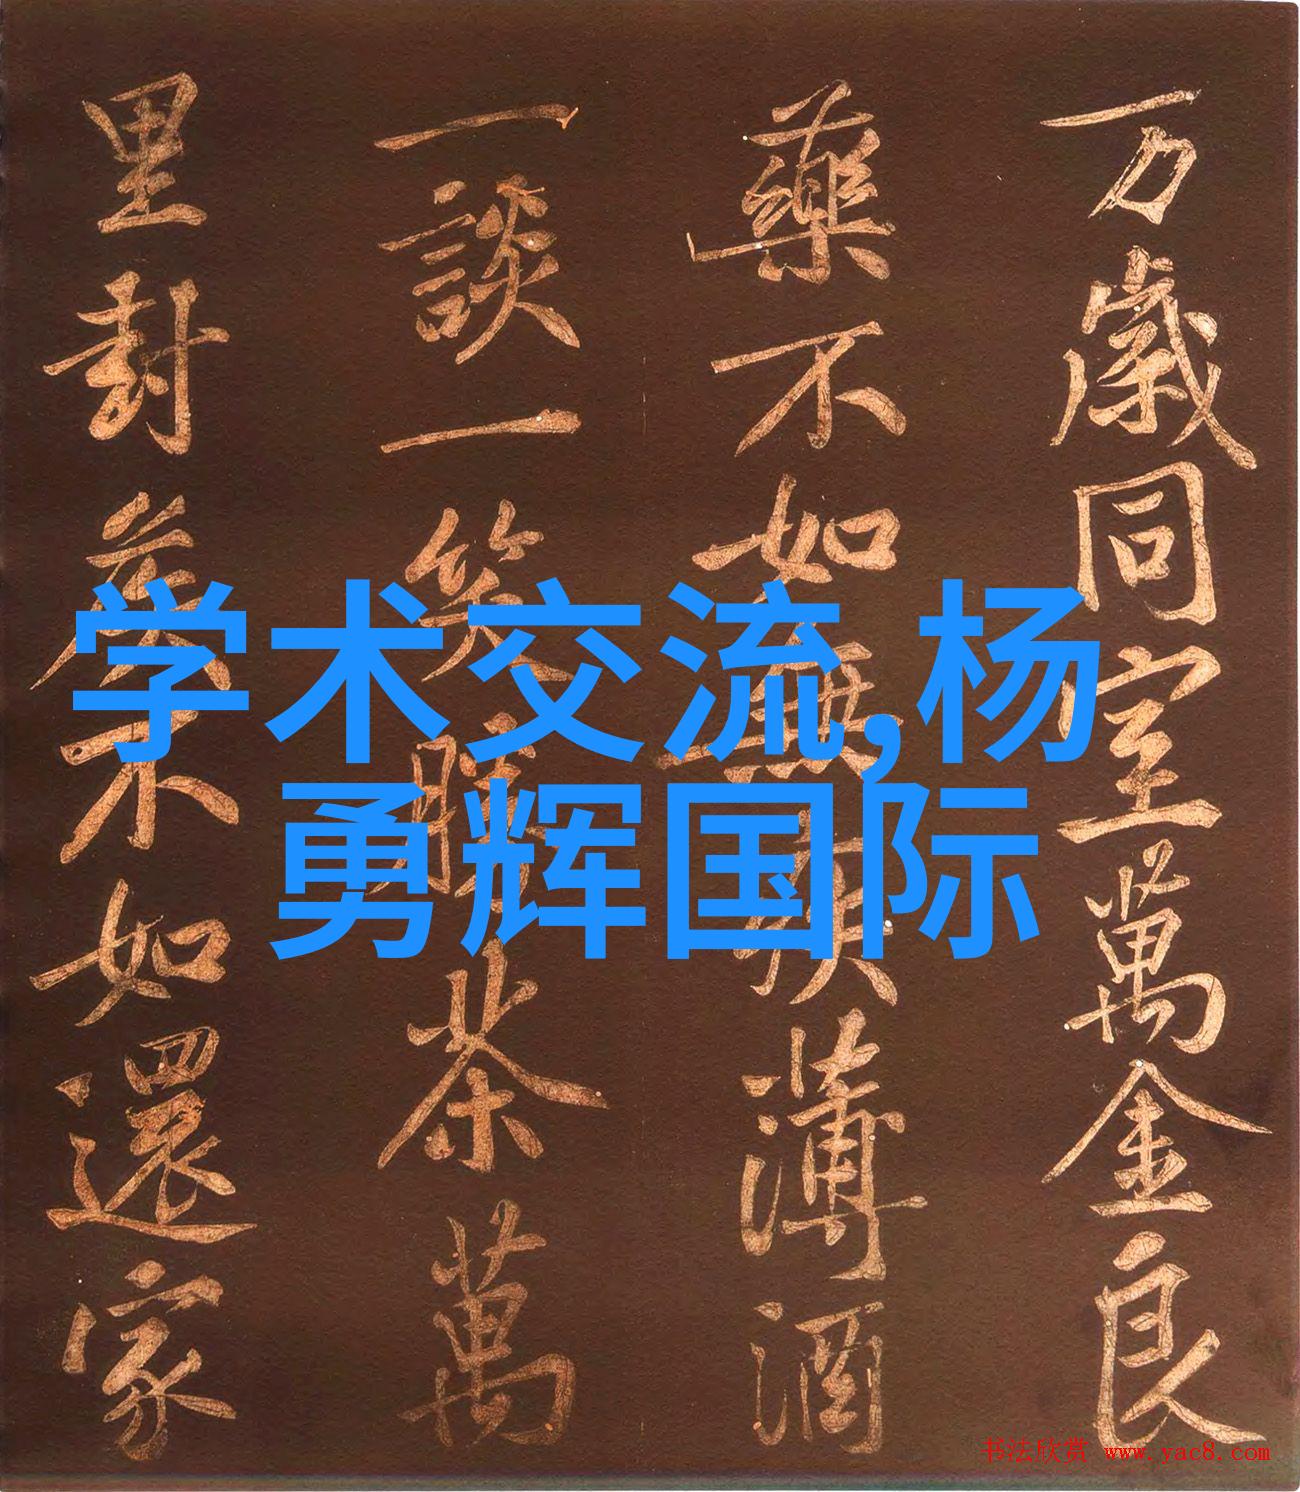 万歲同室萬金良
藥不如無薄酒
一談一笑勝茶萬
里封侯不如還家
学术交流,杨
勇辉国际
书法欣赏 www.yac8.com